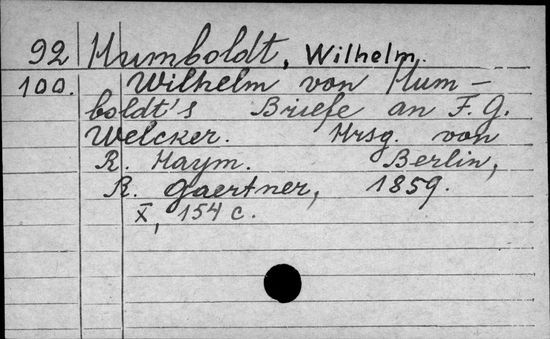 92 Humboldt, Wilhelm.
100. Wilhelm von Hum-
boldt's Briefe an F. G.
Welcker. Hrsg. von
R. Haym. Berlin,
R. Gaertner, 1859.
X, 154 c.